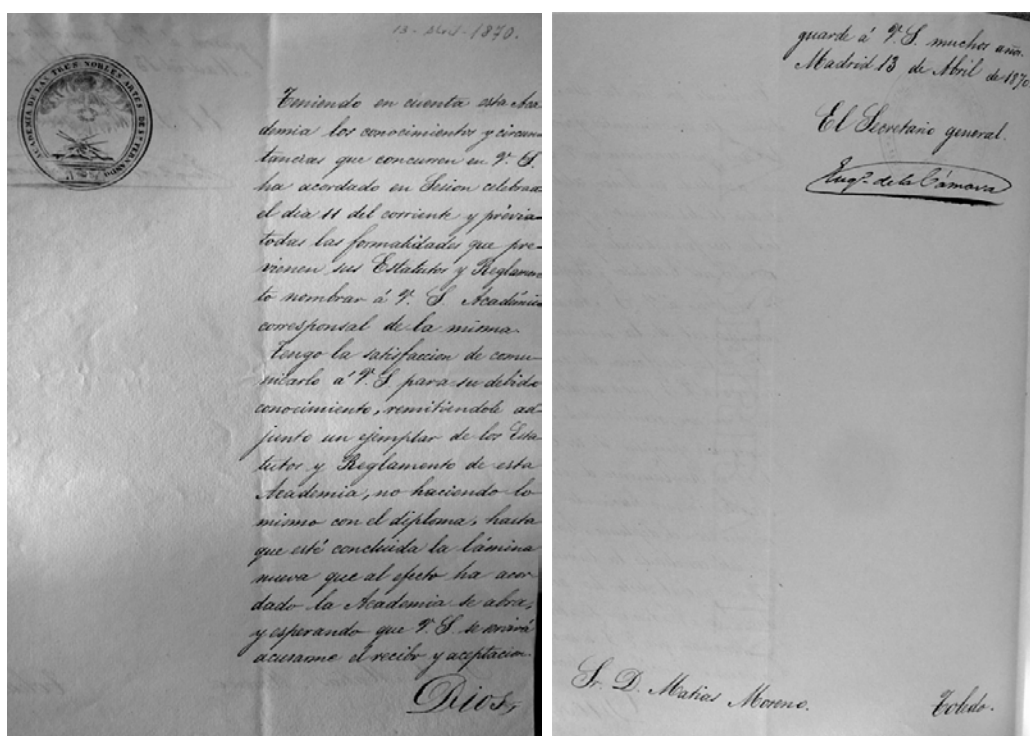 13 - Abril - 1870.
ACADEMIA DE LAS TRES NOBLES ARTES DE Sn. FERNANDO
Teniendo en cuenta esta Aca
demia los conocimientos y circuns
tancias que concurren en V. S.
ha acordado en Sesion celebrada
el dia 11 del corriente y prévias
todas las formalidades que pre-
vienen sus Estatutos y Reglamen
to nombrar á V. S. Académico
corresponsal de la misma.
Tengo la satisfaccion de comu-
nicarlo á V. S. para su debido
conocimiento, remitiendole ad-
junto un ejemplar de los Esta-
tutos y Reglamento de esta
Academia, no haciendo lo
mismo con el diploma, hasta
que esté concluida la lámina
nueva que al efecto ha acor
dado la Academia se abra,
y esperando que V. S. se servirá
acusarme el recibo y aceptacion.
Dios,
guarde á V. S. muchos años.
Madrid 13 de Abril de 1870
El Secretario general.
Eugo. de la Cámara
Sr. D. Matias Moreno.
Toledo.